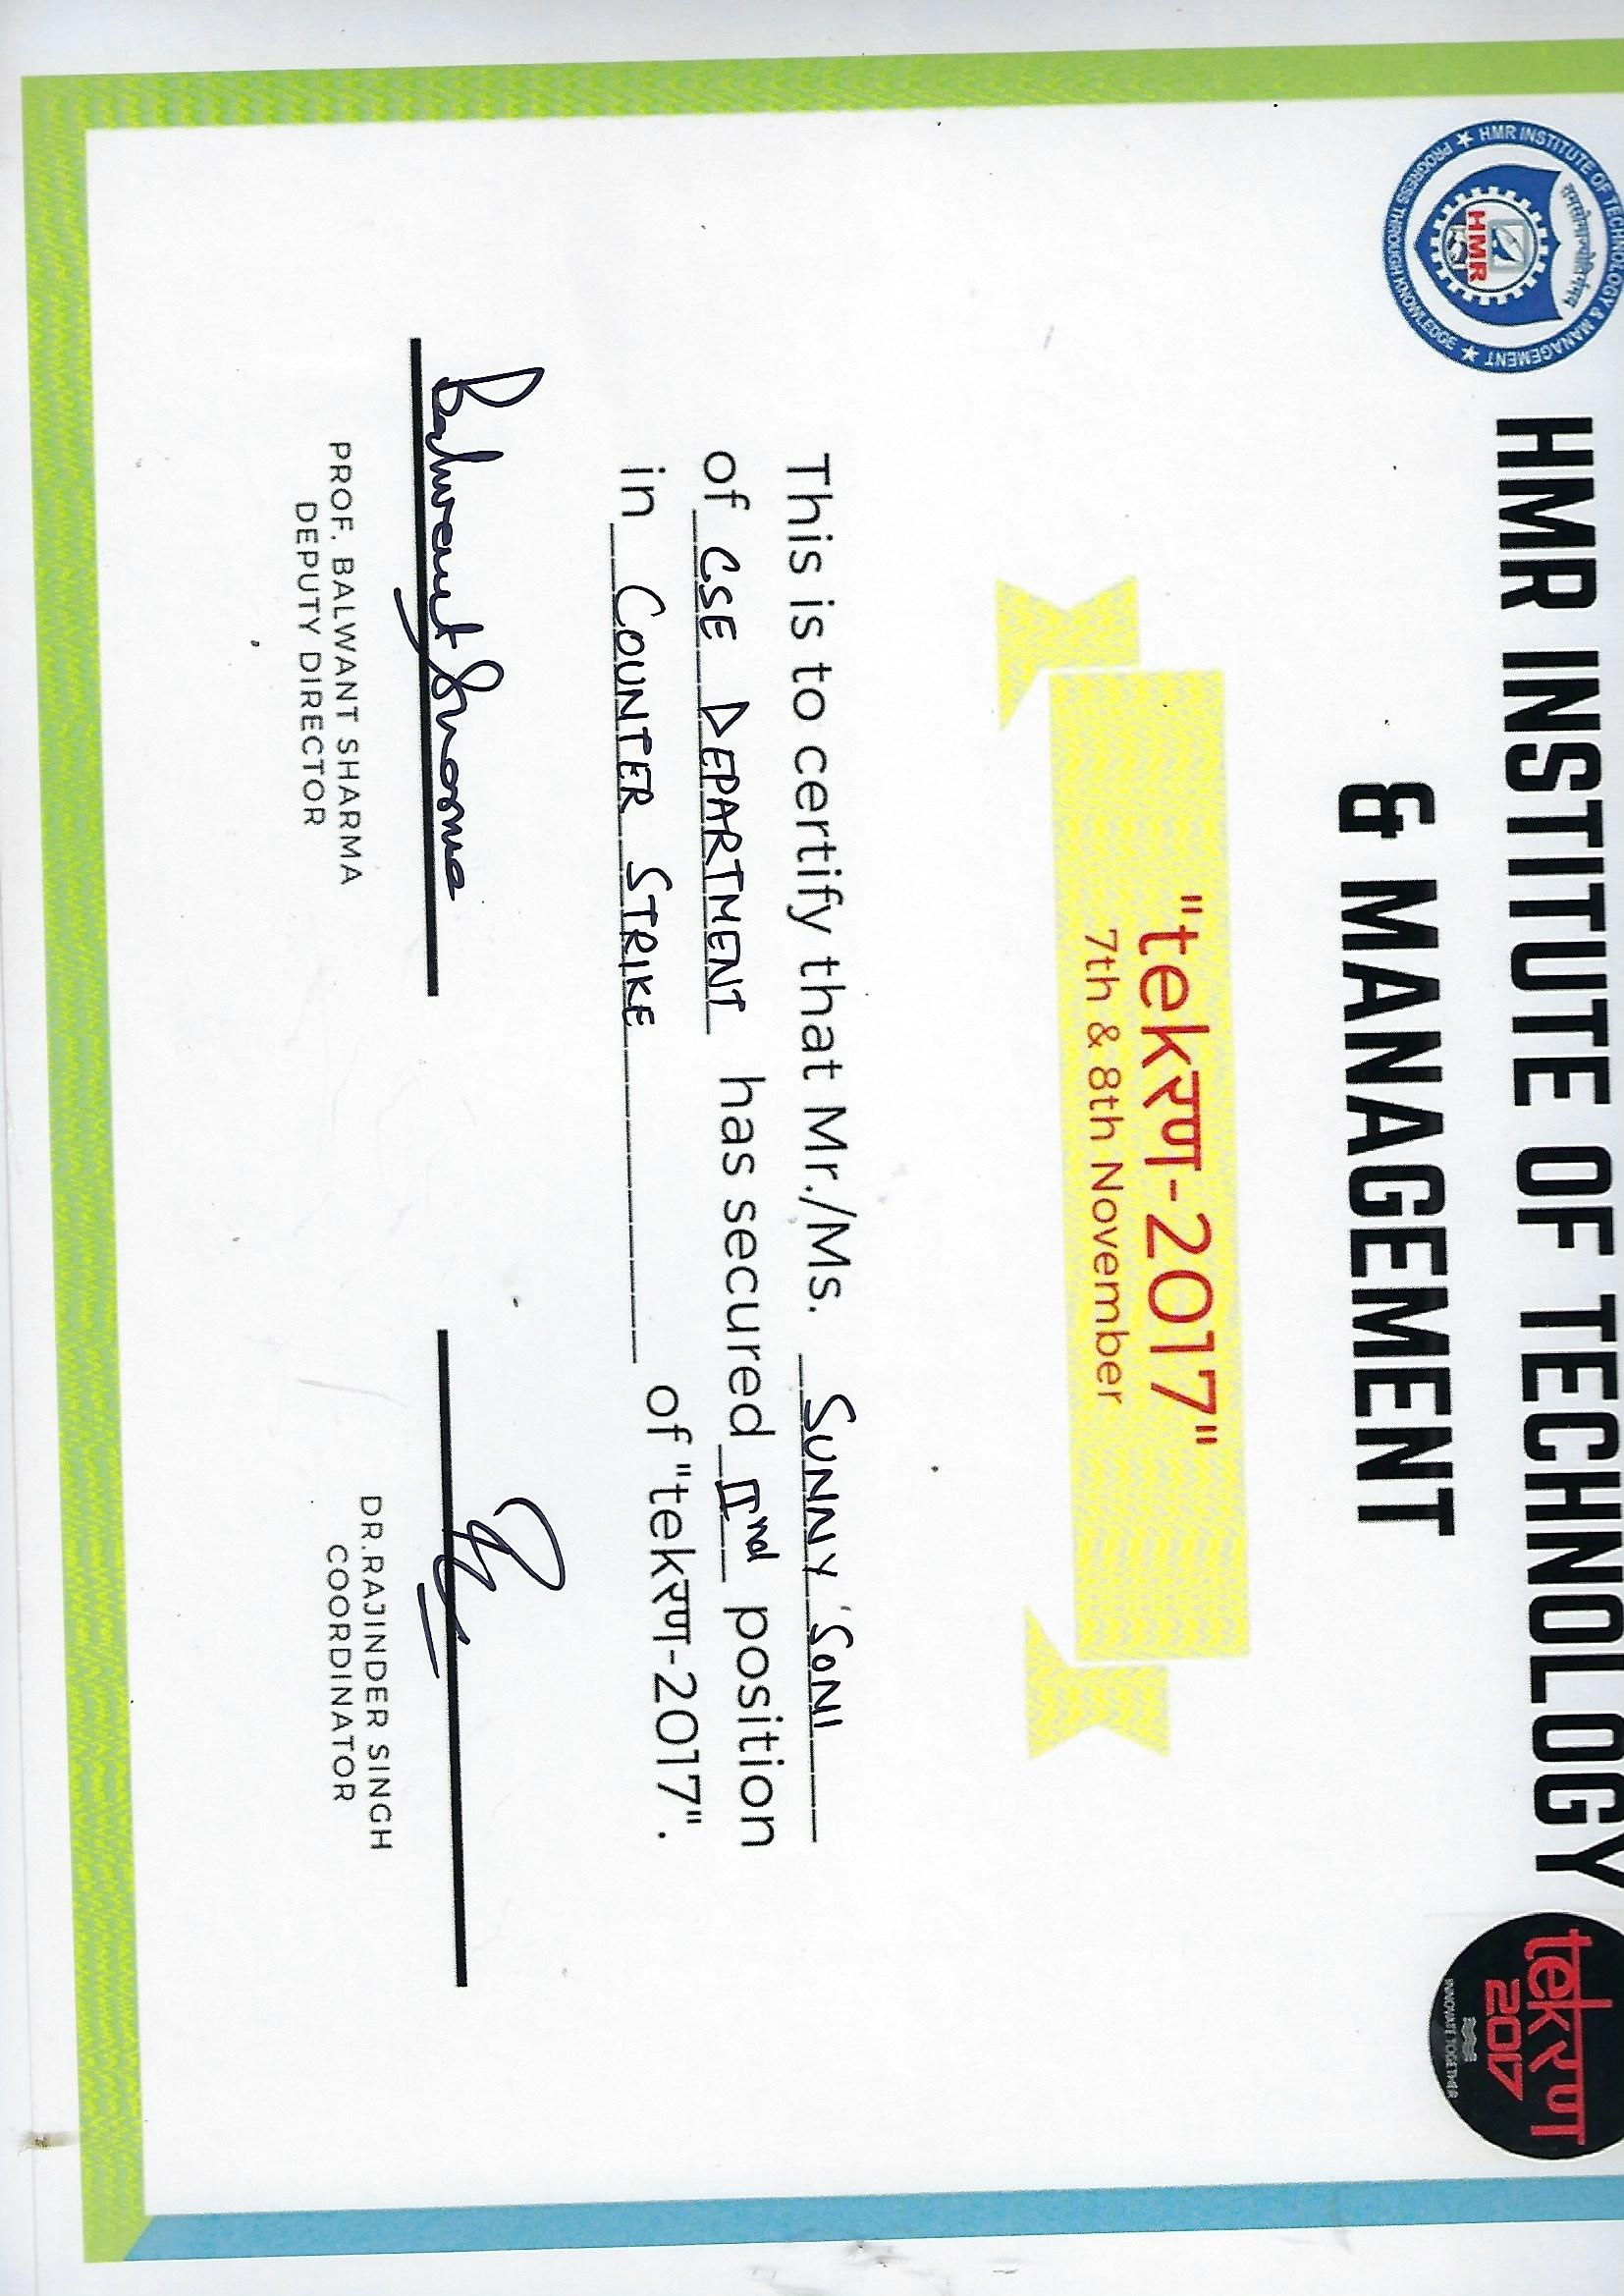 HMR INSTITUTE OF TECHNOLOGY & MANAGEMENT ★ PROGRESS THROUGH KNOWLEDGE ★
तमसोमाज्योतिर्गमय
HMR
HMR INSTITUTE OF TECHNOLOGY
& MANAGEMENT
tekरण
2017
INNOVATE TOGETHER
"tekरण-2017"
7th & 8th November
This is to certify that Mr./Ms. SUNNY SONI
of CSE DEPARTMENT has secured IInd position
in COUNTER STRIKE of "tekरण-2017".
Balwant Sharma
PROF. BALWANT SHARMA
DEPUTY DIRECTOR
DR.RAJINDER SINGH
COORDINATOR